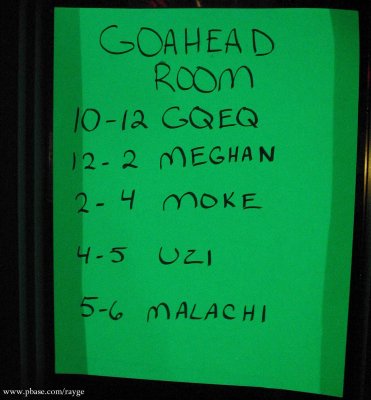 GOAHEAD
ROOM
10-12 GQEQ
12-2 MEGHAN
2-4 MOKE
4-5 UZI
5-6 MALACHI
www.pbase.com/rayge